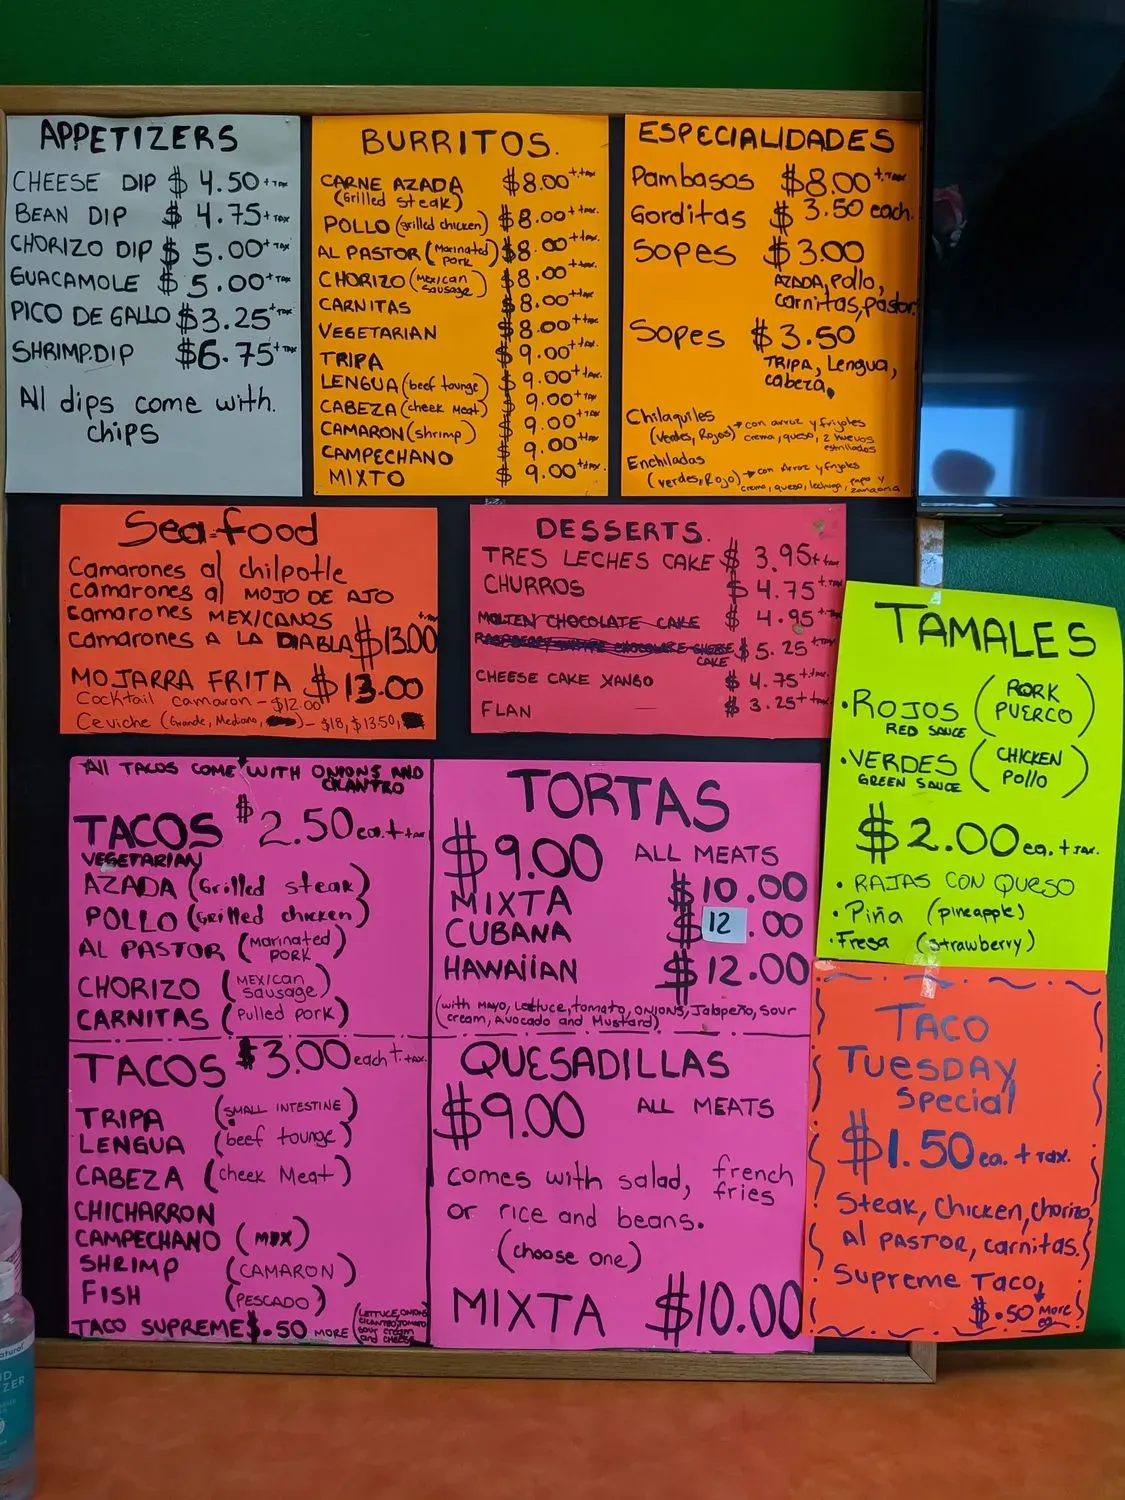 APPETIZERS
CHEESE DIP $ 4.50 + TAX
BEAN DIP $ 4.75 + TAX
CHORIZO DIP $ 5.00 + TAX
GUACAMOLE $ 5.00 + TAX
PICO DE GALLO $3.25 + TAX
SHRIMP.DIP $6.75 + TAX
All dips come with.
chips
BURRITOS.
CARNE AZADA $8.00 + tax.
(Grilled steak)
POLLO (grilled chicken) $8.00 + tax.
AL PASTOR (Marinated Pork) $8.00 + tax.
CHORIZO (Mexican Sausage) $8.00 + tax.
CARNITAS $8.00 + tax
VEGETARIAN $8.00 + tax
TRIPA $9.00 + tax
LENGUA (beef tounge) $9.00 + tax.
CABEZA (cheek Meat) $9.00 + tax
CAMARON (shrimp) $9.00 + tax
CAMPECHANO $9.00 + tax
MIXTO $9.00 + tax
ESPECIALIDADES
Pambasos $8.00 + tax
Gorditas $3.50 each.
Sopes $3.00
AZADA, pollo,
carnitas, pastor
Sopes $3.50
TRIPA, Lengua,
cabeza,
Chilaquiles
(Verdes, Rojos) → con arroz y frijoles
crema, queso, 2 huevos
estrellados
Enchiladas
(verdes, Rojo) → con Arroz y frijoles
crema, queso, lechuga, papa y
zanaoria
Sea food
Camarones al chilpotle
Camarones al MOJO DE AJO
Camarones MEXICANOS
Camarones A LA DIABLA $13.00 + tax
MOJARRA FRITA $13.00
Cocktail camaron - $12.00
Ceviche (Grande, Mediano, ) - $18, $13.50,
DESSERTS.
TRES LECHES CAKE $ 3.95 + tax
CHURROS $ 4.75 + tax
MOLTEN CHOCOLATE CAKE $ 4.95 + tax
RASPBERRY WHITE CHOCOLATE CHEESE CAKE $ 5.25 + tax
CHEESE CAKE XANGO $ 4.75 + tax.
FLAN $ 3.25 + tax
TAMALES
• ROJOS (PORK PUERCO)
RED SAUCE
• VERDES (CHICKEN Pollo)
GREEN SAUCE
$2.00 ea. + TAX.
• RAJAS CON QUESO
• Piña (pineapple)
• Fresa (strawberry)
All TACOS COME WITH ONIONS AND
CILANTRO
TACOS $2.50 ea. + tax
VEGETARIAN
AZADA (Grilled steak)
POLLO (Grilled chicken)
AL PASTOR (Marinated PORK)
CHORIZO (MEXICAN Sausage)
CARNITAS (Pulled pork)
TACOS $3.00 each + tax.
TRIPA (SMALL INTESTINE)
LENGUA (beef tounge)
CABEZA (cheek Meat)
CHICHARRON
CAMPECHANO (MIX)
SHRIMP (CAMARON)
FISH (PESCADO)
TACO SUPREME $.50 MORE (LETTUCE, ONIONS CILANTRO, TOMATO Sour cream and CHEESE)
TORTAS
$9.00 ALL MEATS
MIXTA $10.00
CUBANA $12.00
HAWAiiAN $12.00
(with MAYO, Lettuce, tomato, ONIONS, Jalapeño, Sour
cream, Avocado and Mustard)
QUESADILLAS
$9.00 ALL MEATS
comes with salad, french
fries
or rice and beans.
(choose one)
MIXTA $10.00
TACO
TUESDAY
Special
$1.50 ea. + Tax.
Steak, Chicken, Chorizo,
Al PASTOR, carnitas.
Supreme Taco
$.50 More ea